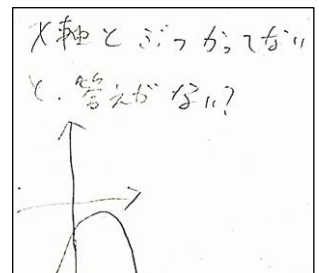 x軸とぶつかってない
と、答えがない?